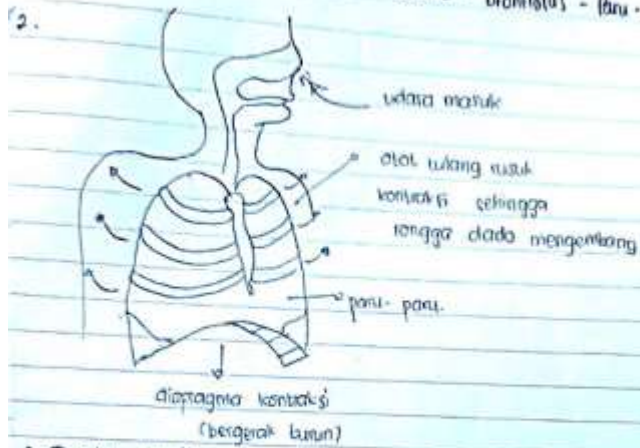 bronkiolus - paru -
2.
udara masuk
otot tulang rusuk
kontraksi sehingga
rongga dada mengembang
paru-paru.
diapragma kontraksi
(bergerak turun)